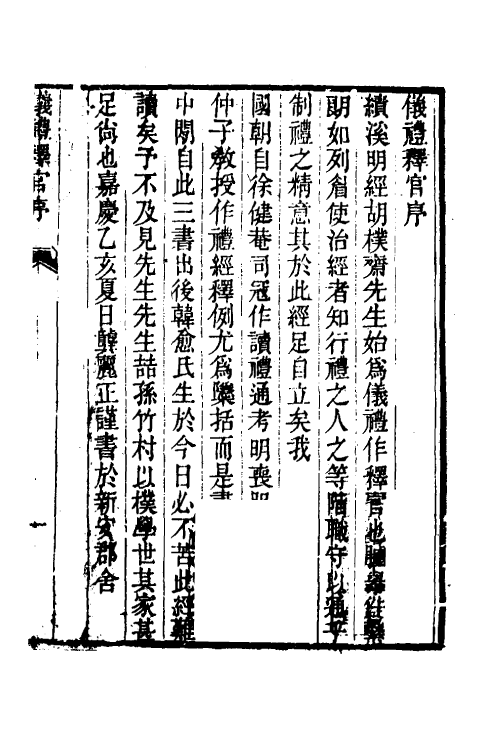 儀禮釋官序
績溪明經胡樸齋先生始爲儀禮作釋官也臚舉
朗如列眉使治經者知行禮之人之等階職守以通乎
制禮之精意其於此經足自立矣我
國朝自徐健菴司寇作讀禮通考明喪服
仲子教授作禮經釋例尤爲檃括而是書
中閒自此三書出後韓愈氏生於今日必不苦此經難
讀矣予不及見先生先生喆孫竹村以樸學世其家甚
足尙也嘉慶乙亥夏日龔麗正謹書於新安郡舍
儀禮釋官序
一